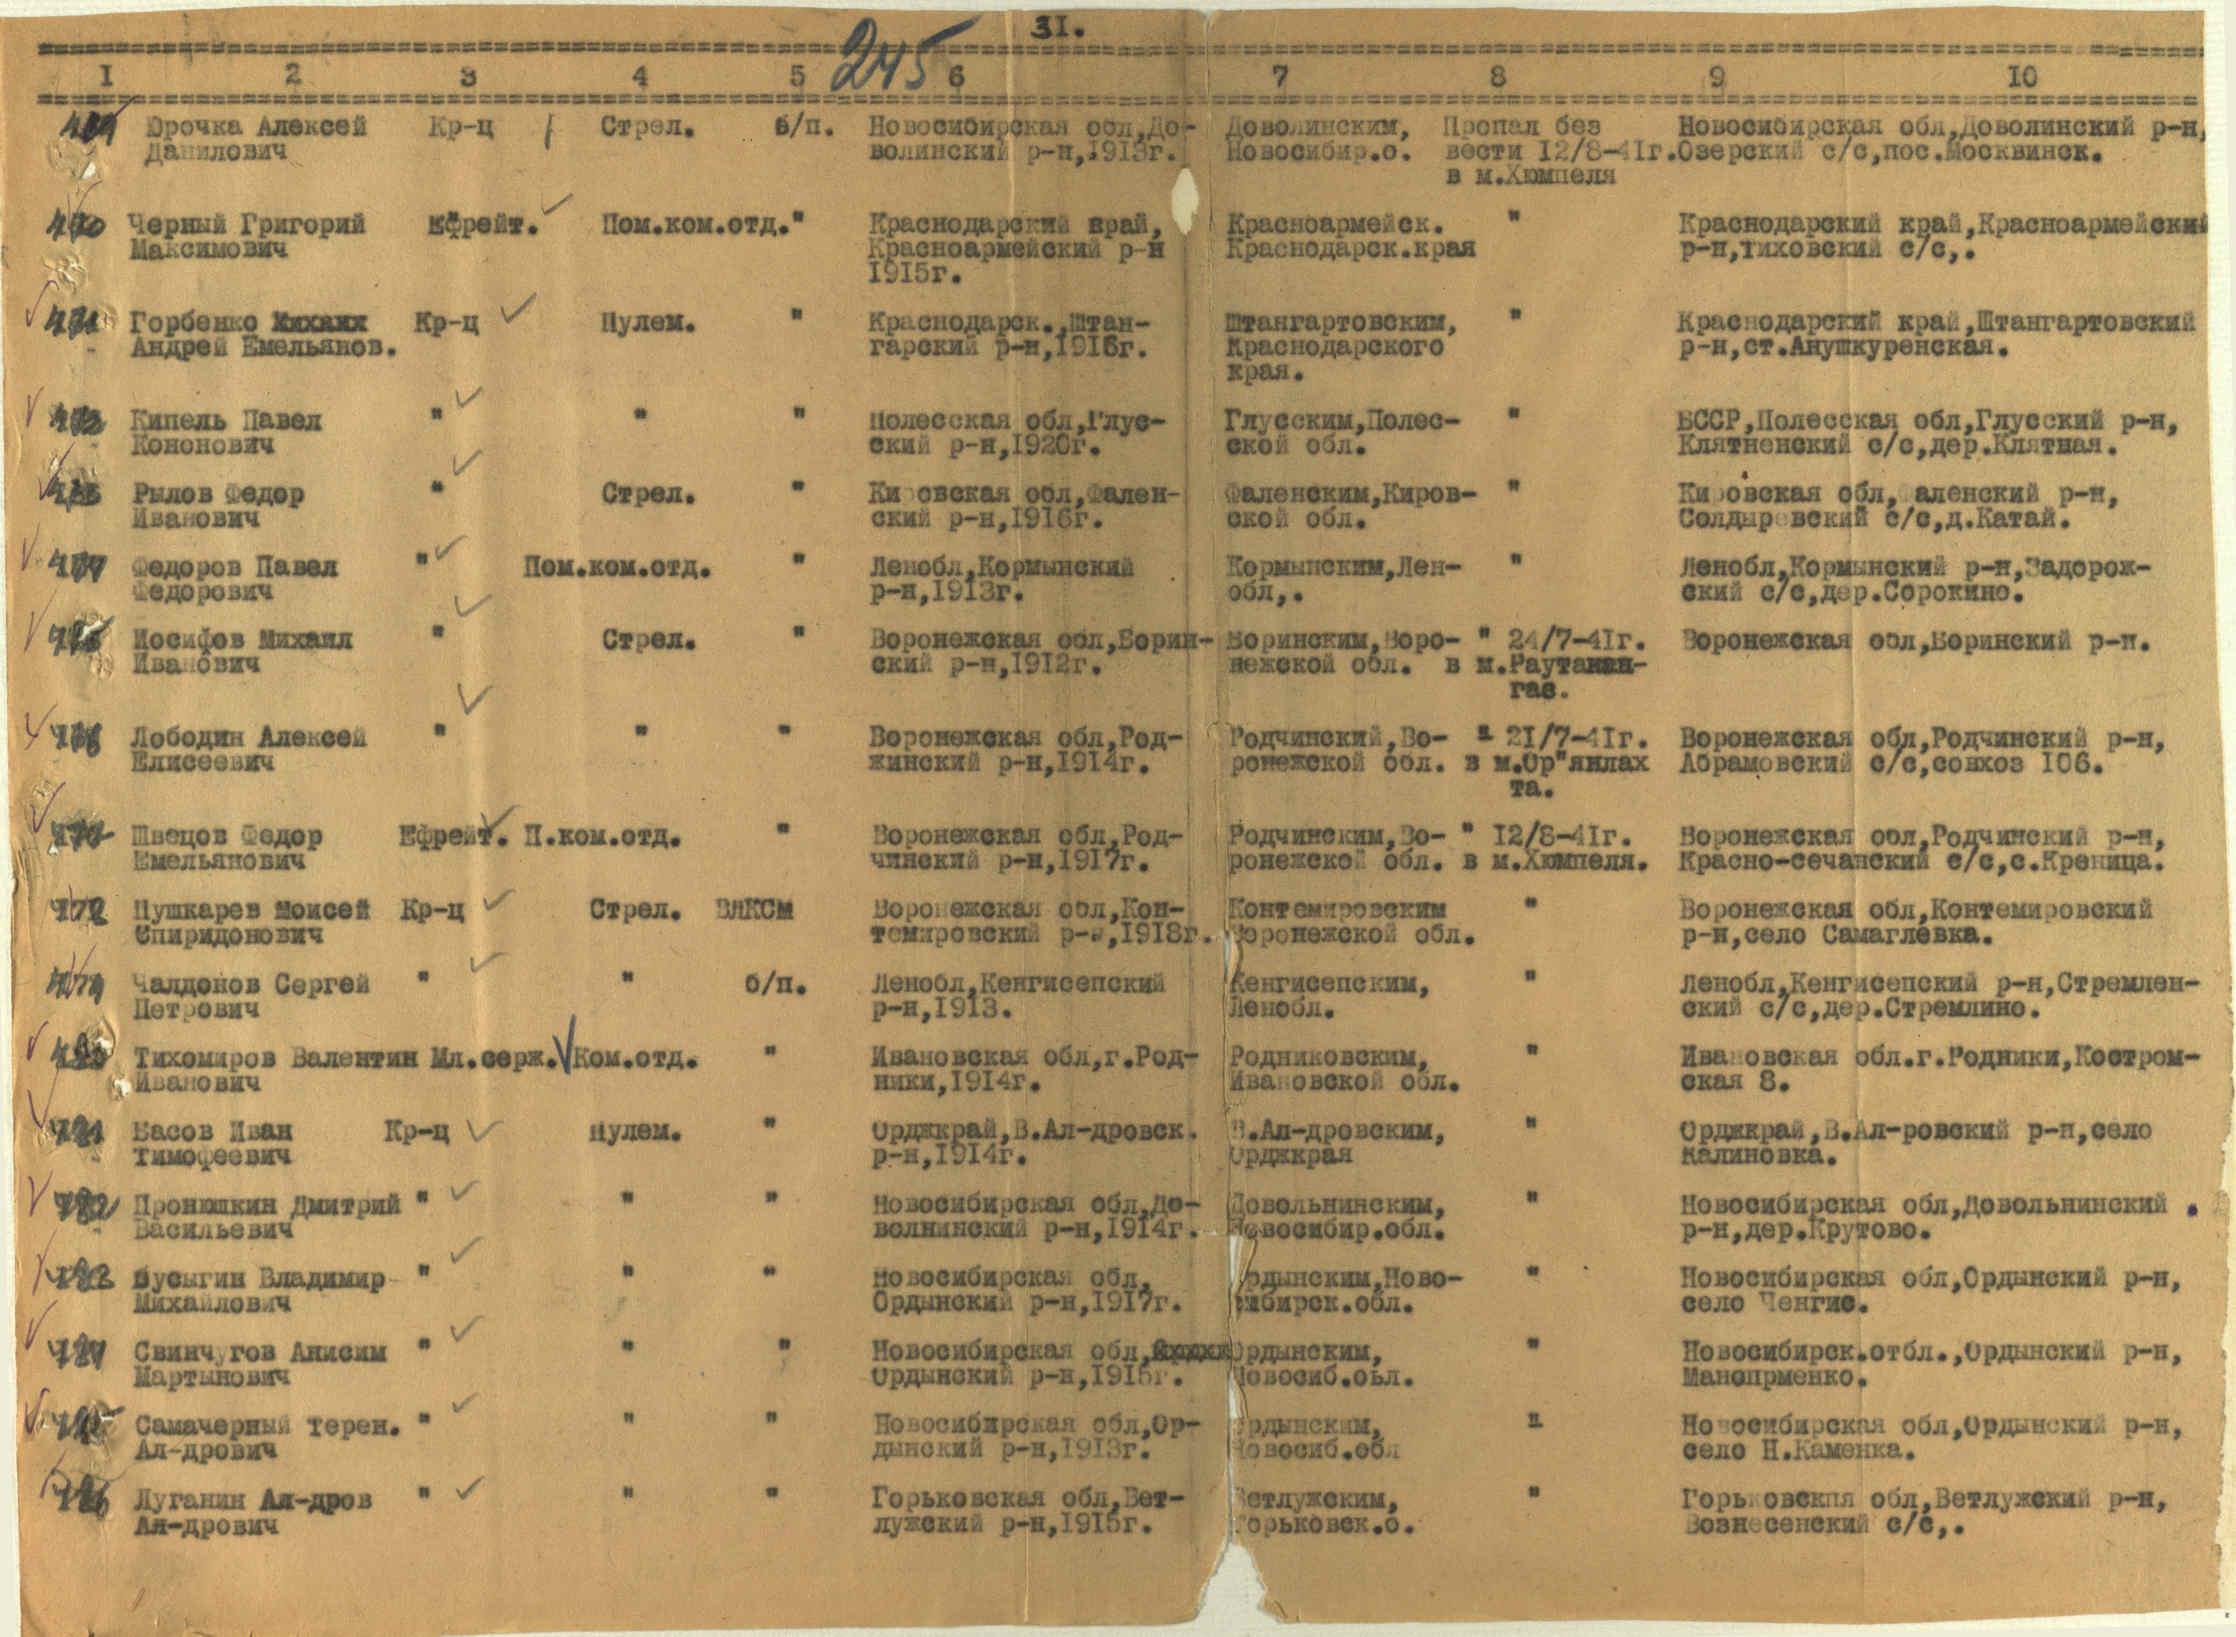 31.
245
I 2 3 4 5 6 7 8 9 10
Юрочка Алексей Кр-ц Стрел. б/п. Новосибирская обл,До- Доволинским, Пропал без Новосибирская обл,Доволинский р-н,
Данилович волинский р-н,1913г. Новосибир.о. вести 12/8-41г. Озерский с/с,пос.Москвинск.
в м.Хюмпеля
470 Черный Григорий Ефрейт. Пом.ком.отд. " Краснодарский край, Красноармейск. " Краснодарский край,Красноармейский
Максимович Красноармейский р-н Краснодарск.края р-н,Тиховский с/с,.
1915г.
471 Горбенко Кр-ц Пулем. " Краснодарск.,Штан- Штангартовским, " Краснодарский край,Штангартовский
Андрей Емельянов. гарский р-н,1916г. Краснодарского р-н,ст.Анушкуренская.
края.
Кипель Павел " " " Полесская обл,Глус- Глусским,Полес- " БССР,Полесская обл,Глусский р-н,
Кононович ский р-н,1920г. ской обл. Клятненский с/с,дер.Клятная.
Рылов Федор " Стрел. " Кировская обл,Фален- Фаленским,Киров- " Кировская обл,Фаленский р-н,
Иванович ский р-н,1916г. ской обл. Солдыревский с/с,д.Катай.
Федоров Павел " Пом.ком.отд. " Ленобл,Кормынский Кормынским,Лен- " Ленобл,Кормынский р-н,Задорож-
Федорович р-н,1913г. обл,. ский с/с,дер.Сорокино.
Иосифов Михаил " Стрел. " Воронежская обл,Борин- Боринским,Воро- " 24/7-41г. Воронежская обл,Боринский р-н.
Иванович ский р-н,1912г. нежской обл. в м.Раутакан-
гас.
Лободин Алексей " " " Воронежская обл,Род- Родчинский,Во- " 21/7-41г. Воронежская обл,Родчинский р-н,
Елисеевич жинский р-н,1914г. ронежской обл. в м.Ор"янлах Абрамовский с/с,совхоз 106.
та.
Швецов Федор Ефрейт. П.ком.отд. " Воронежская обл,Род- Родчинским,Во- " 12/8-41г. Воронежская обл,Родчинский р-н,
Емельянович чинский р-н,1917г. ронежской обл. в м.Хюмпеля. Красно-сечанский с/с,с.Креница.
Пушкарев Моисей Кр-ц Стрел. ВЛКСМ Воронежская обл,Кон- Контемировским " Воронежская обл,Контемировский
Спиридонович темировский р-н,1918г. Воронежской обл. р-н,село Самаглевка.
479 Чалдонов Сергей " " б/п. Ленобл,Кенгисепский Кенгисепским, " Ленобл,Кенгисепский р-н,Стремлен-
Петрович р-н,1913. Ленобл. ский с/с,дер.Стремлино.
Тихомиров Валентин Мл.серж. Ком.отд. " Ивановская обл,г.Род- Родниковским, " Ивановская обл.г.Родники,Костром-
Иванович ники,1914г. Ивановской обл. ская 8.
Басов Иван Кр-ц Пулем. " Орджкрай,В.Ал-дровск. В.Ал-дровским, " Орджкрай,В.Ал-ровский р-н,село
Тимофеевич р-н,1914г. Орджкрая Калиновка.
Пронюшкин Дмитрий " " " Новосибирская обл,До- Довольнинским, " Новосибирская обл,Довольнинский
Васильевич волнинский р-н,1914г. Новосибир.обл. р-н,дер.Крутово.
Бусыгин Владимир " " " Новосибирская обл, Ордынским,Ново- " Новосибирская обл,Ордынский р-н,
Михайлович Ордынский р-н,1917г. сибирск.обл. село Ченгис.
Свинчугов Анисим " " " Новосибирская обл, Ордынским, " Новосибирск.отбл.,Ордынский р-н,
Мартынович Ордынский р-н,1915г. Новосиб.обл. Манопрменко.
Самачерный Терен. " " " Новосибирская обл,Ор- Ордынским, " Новосибирская обл,Ордынский р-н,
Ал-дрович дынский р-н,1913г. Новосиб.обл село Н.Каменка.
Луганин Ал-дров " " " Горьковская обл,Вет- Ветлужским, " Горьковскпя обл,Ветлужский р-н,
Ал-дрович лужский р-н,1915г. Горьковск.о. Вознесенский с/с,.